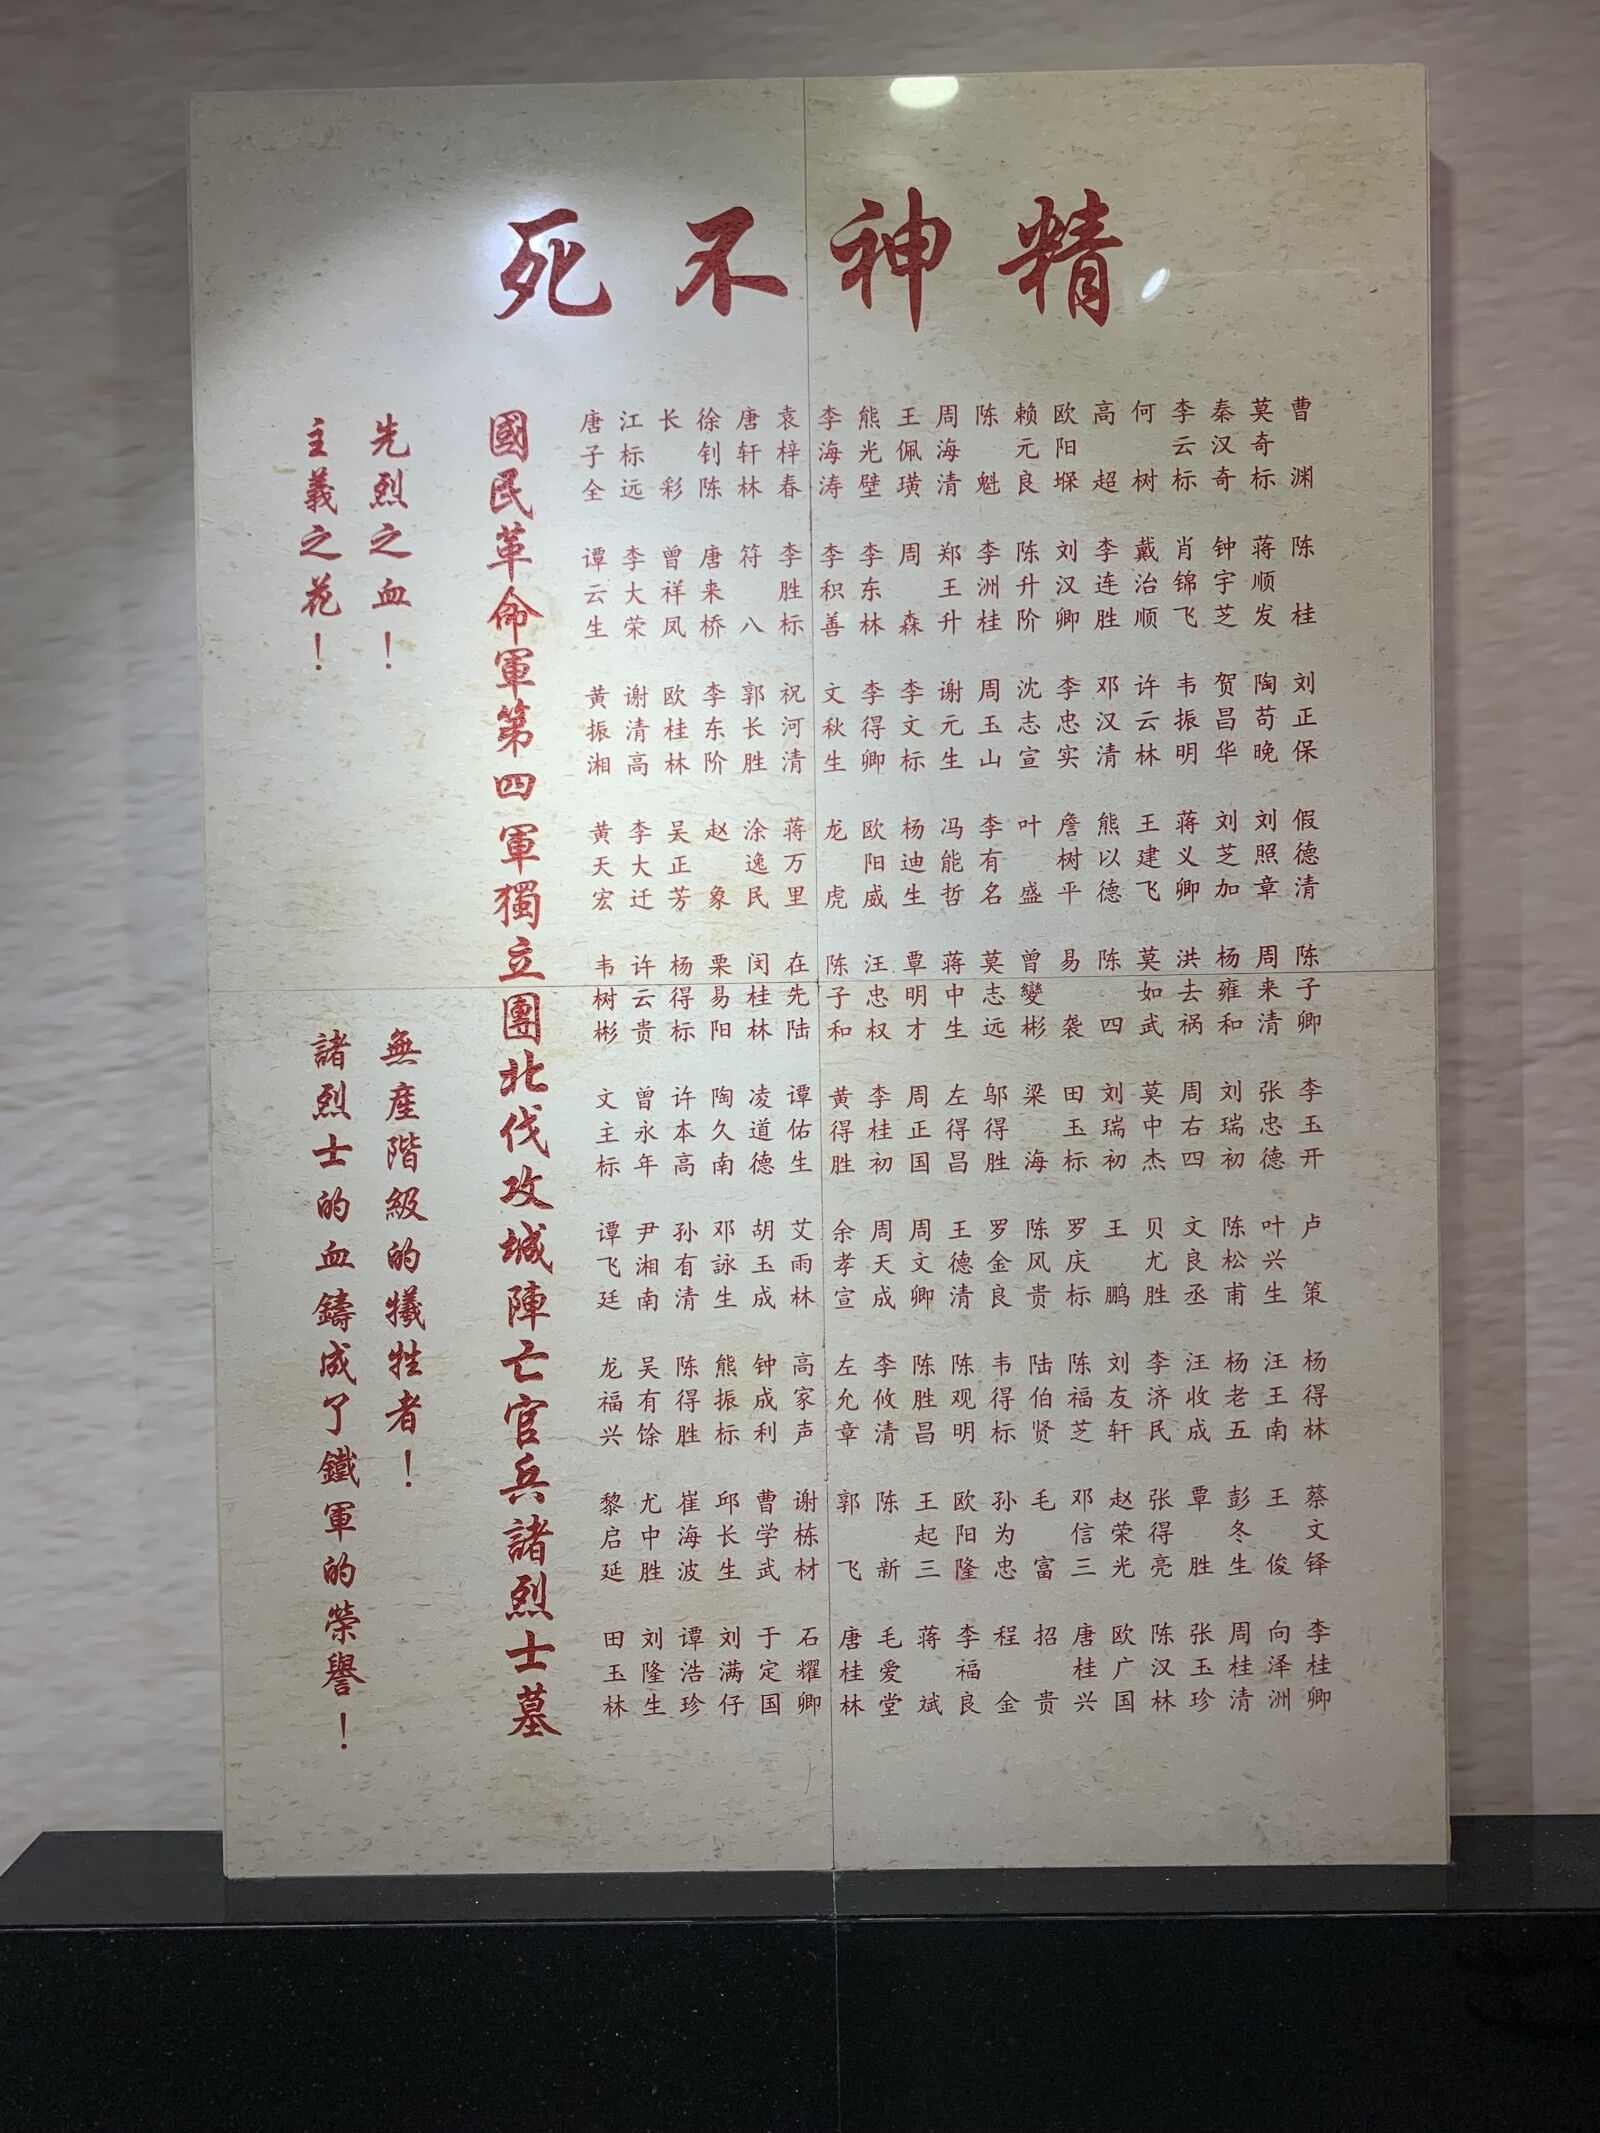 精神不死
曹渊 莫奇标 秦汉奇 李云标 何树 高超 欧阳堢 赖元良 陈魁 周海清 王佩璜 熊光壁 李海涛 袁梓春 唐轩林 徐钊陈 长彩 江标远 唐子全
陈桂 蒋顺发 钟宇芝 肖锦飞 戴治顺 李连胜 刘汉卿 陈升阶 李洲桂 郑王升 周森 李东林 李积善 李胜标 符八 唐来桥 曾祥凤 李大荣 谭云生
刘正保 陶苟晚 贺昌华 韦振明 许云林 邓汉清 李忠实 沈志宣 周玉山 谢元生 李文标 李得卿 文秋生 祝河清 郭长胜 李东阶 欧桂林 谢清高 黄振湘
假德清 刘照章 刘芝加 蒋义卿 王建飞 熊以德 詹树平 叶盛 李有名 冯能哲 杨迪生 欧阳威 龙虎 蒋万里 涂逸民 赵象 吴正芳 李大迁 黄天宏
陈子卿 周来清 杨雍和 洪去祸 莫如武 陈四 易袭 曾變彬 莫志远 蒋中生 覃明才 汪忠权 陈子和 在先陆 闵桂林 栗易阳 杨得标 许云贵 韦树彬
李玉开 张忠德 刘瑞初 周右四 莫中杰 刘瑞初 田玉标 梁海 邬得胜 左得昌 周正国 李桂初 黄得胜 谭佑生 凌道德 陶久南 许本高 曾永年 文主标
卢策 叶兴生 陈松甫 文良丞 贝尤胜 王鹏 罗庆标 陈风贵 罗金良 王德清 周文卿 周天成 余孝宣 艾雨林 胡玉成 邓詠生 孙有清 尹湘南 谭飞廷
杨得林 汪王南 杨老五 汪收成 李济民 刘友轩 陈福芝 陆伯贤 韦得标 陈观明 陈胜昌 李攸清 左允章 高家声 钟成利 熊振标 陈得胜 吴有馀 龙福兴
蔡文铎 王俊 彭冬生 覃胜 张得亮 赵荣光 邓信三 毛富 孙为忠 欧阳隆 王起三 陈新 郭飞 谢栋材 曹学武 邱长生 崔海波 尤中胜 黎启延
李桂卿 向泽洲 周桂清 张玉珍 陈汉林 欧广国 唐桂兴 招贵 程金 李福良 蒋斌 毛爱堂 唐桂林 石耀卿 于定国 刘满仔 谭浩珍 刘隆生 田玉林
國民革命軍第四軍獨立團北伐攻城陣亡官兵諸烈士墓
先烈之血！
主義之花！
無產階級的犧牲者！
諸烈士的血鑄成了鐵軍的榮譽！